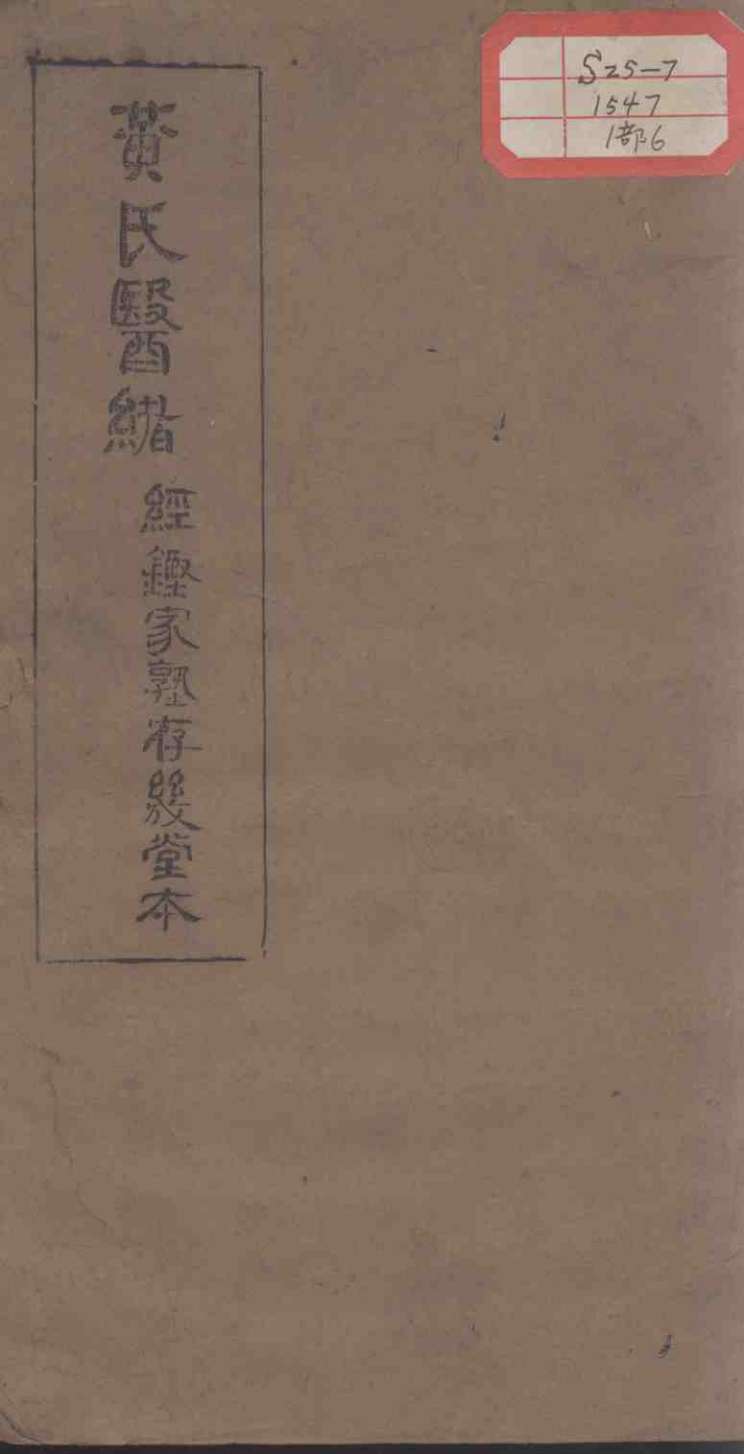 黃氏醫緒
經鏗家塾存幾堂本
S25-7
1547
1部6